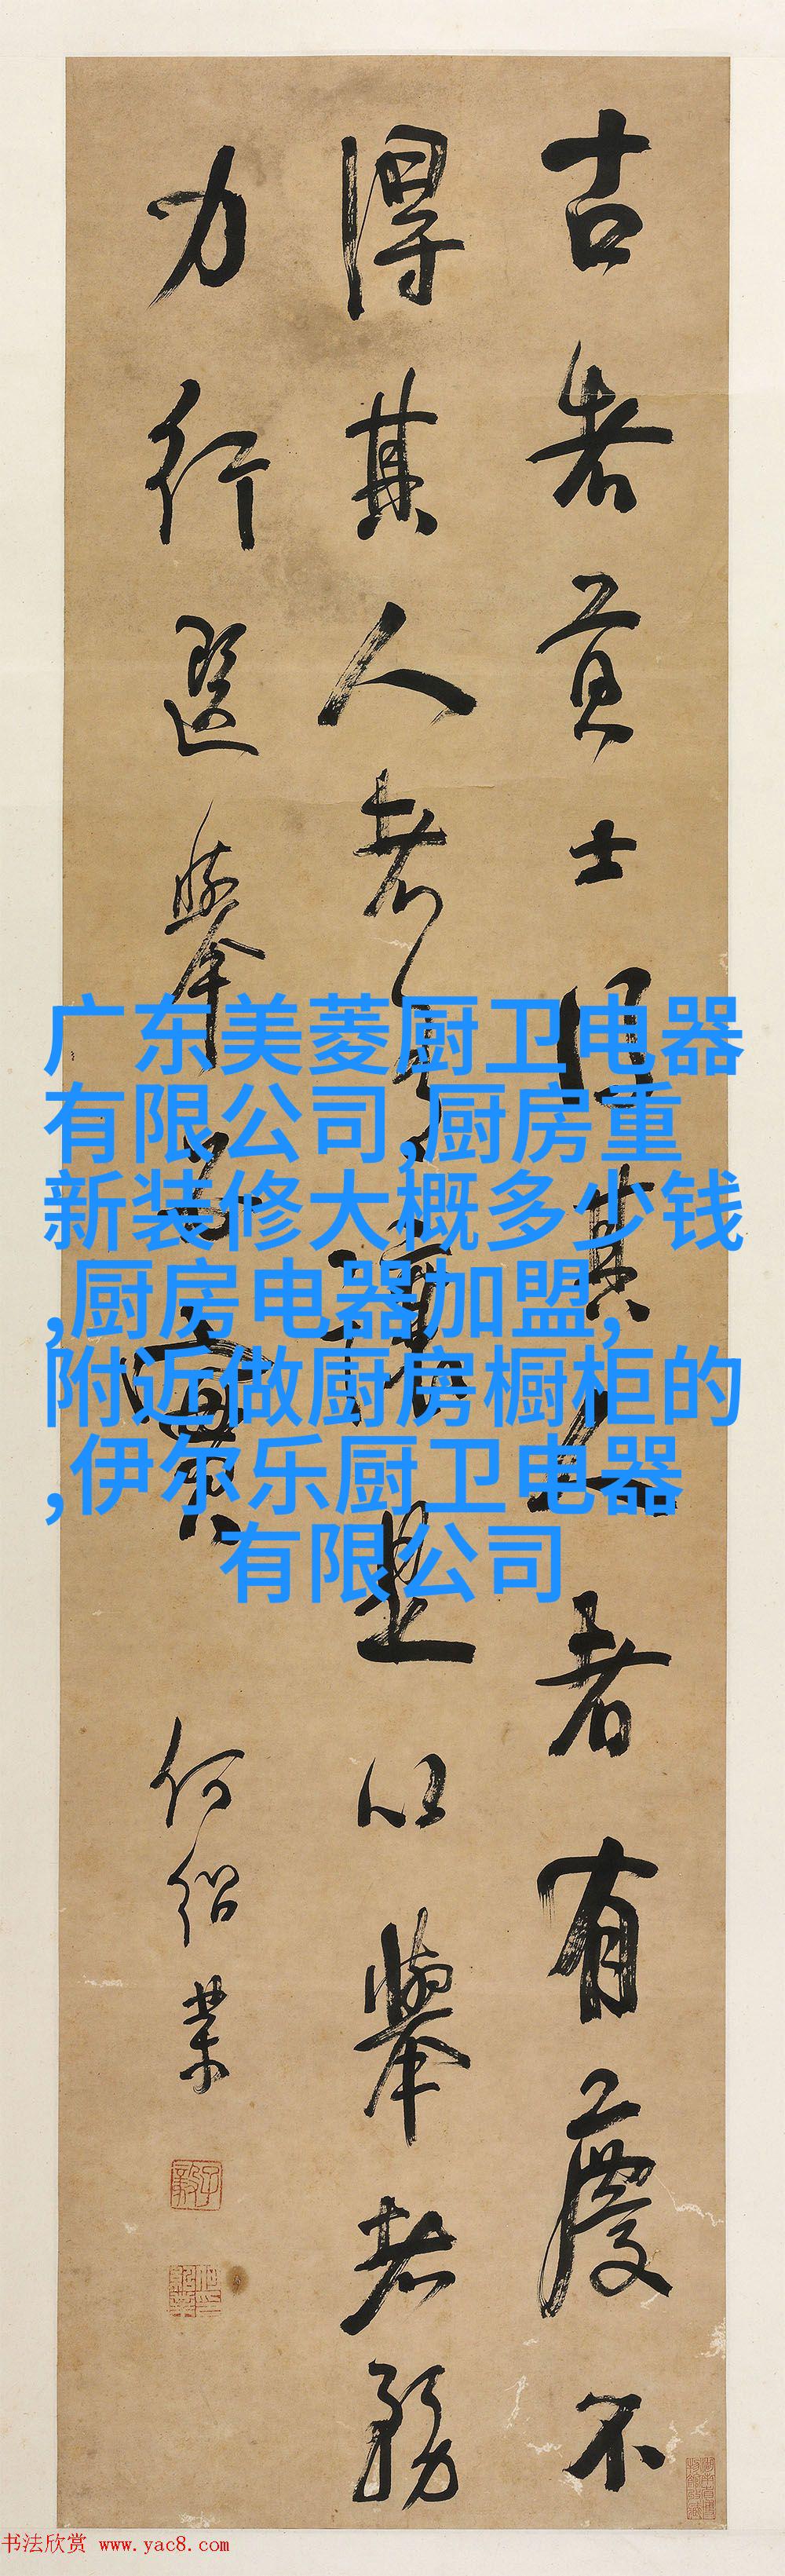 古者貢士得其人者有慶不
得其人者有讓是以舉者務
力行選舉之實
何紹業
广东美菱厨卫电器
有限公司,厨房重
新装修大概多少钱
,厨房电器加盟,
附近做厨房橱柜的
,伊尔乐厨卫电器
有限公司
书法欣赏 www.yac8.com